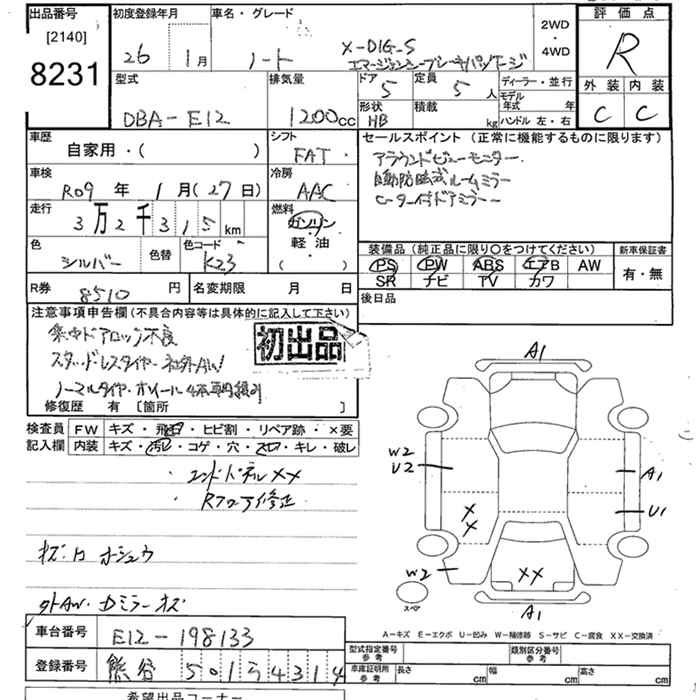 出品番号
[2140]
8231
初度登録年月
26 1月
車名・グレード
ノート X-DIG-S
エマージェンシーブレーキパッケージ
2WD
・
4WD
評価点
R
外装 内装
C C
型式
DBA-E12
排気量
1200cc
ドア 5
定員 5人
ディーラー・並行
モデル年式 年
形状 HB
積載 kg
ハンドル 左・右
車歴
自家用・( )
シフト
FAT
車検
R09年 1月(27日)
冷房
AAC
走行
3万2千315km
燃料
ガソリン
・
軽油
( )
色
シルバー
色替
色コード
K23
R券
8510円
名変期限 月 日
セールスポイント(正常に機能するものに限ります)
アラウンドビューモニター
自動防眩式ルームミラー
ヒーター付ドアミラー
装備品(純正品に限り○をつけてください)
PS PW ABS エアB AW
SR ナビ TV カワ
新車保証書
有・無
後日品
注意事項申告欄(不具合内容等は具体的に記入して下さい)
集中ドアロック不良
スタッドレスタイヤ・社外AW
ノーマルタイヤ・ホイール4本車内積み
初出品
修復歴 有 [箇所 ]
検査員記入欄
FW キズ・飛石・ヒビ割・リペア跡・×要
内装 キズ・汚れ・コゲ・穴・スレ・キレ・破レ
・エンドパネルXX
・Rフロア修正
A1
W2
U2
A1
U1
X
X
W2
XX
A1
スペア
A-キズ E-エクボ U-凹み W-補修跡 S-サビ C-腐食 XX-交換済
車台番号
E12-198133
登録番号
熊谷 501 ラ 4314
型式指定番号
参考
類別区分番号
参考
車庫証明所
参考
長さ cm 幅 cm 高さ cm
希望出品コーナー